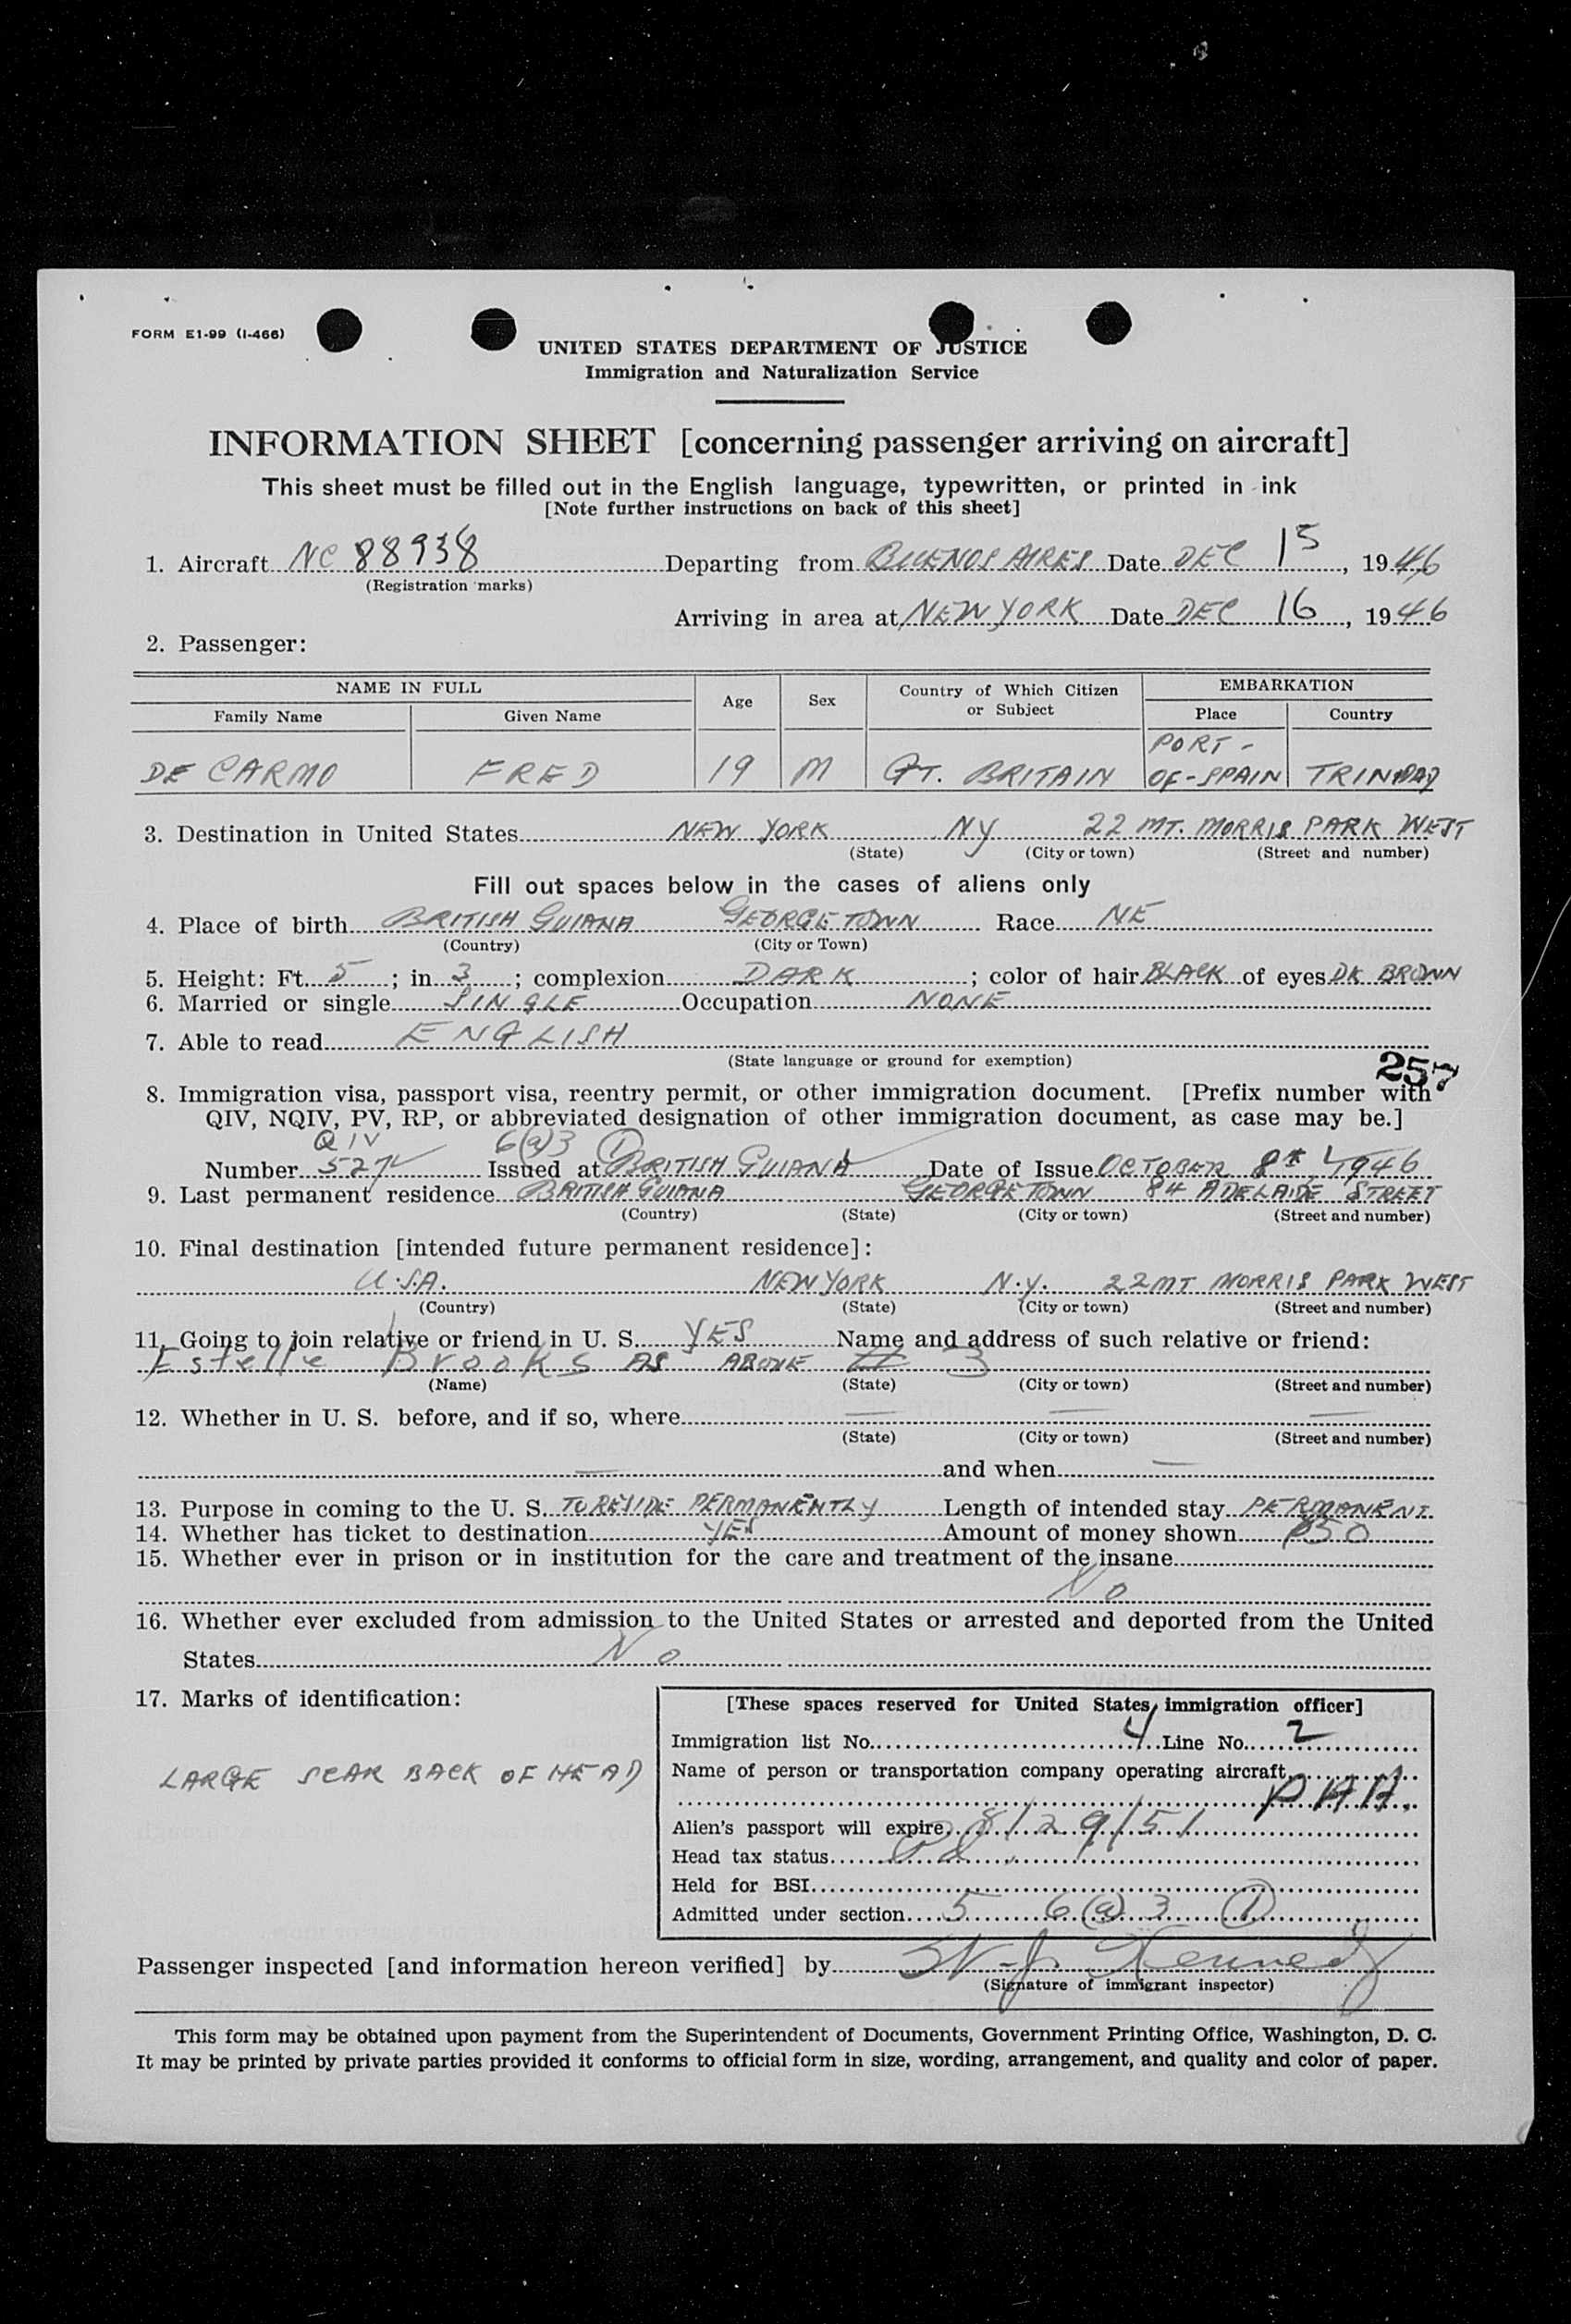 FORM E1-99 (I-466)
UNITED STATES DEPARTMENT OF JUSTICE
Immigration and Naturalization Service
INFORMATION SHEET [concerning passenger arriving on aircraft]
This sheet must be filled out in the English language, typewritten, or printed in ink
[Note further instructions on back of this sheet]
1. Aircraft NC 88938 Departing from BUENOS AIRES Date DEC 15, 1946
(Registration marks)
Arriving in area at NEW YORK Date DEC 16, 1946
2. Passenger:
NAME IN FULL Age Sex Country of Which Citizen or Subject EMBARKATION
Family Name Given Name Place Country
DE CARMO FRED 19 M GT. BRITAIN PORT-OF-SPAIN TRINIDAD
3. Destination in United States NEW YORK NY 22 MT. MORRIS PARK WEST
(State) (City or town) (Street and number)
Fill out spaces below in the cases of aliens only
4. Place of birth BRITISH GUIANA GEORGETOWN Race NE
(Country) (City or Town)
5. Height: Ft. 5; in 3; complexion DARK; color of hair BLACK of eyes DK BROWN
6. Married or single SINGLE Occupation NONE
7. Able to read ENGLISH
(State language or ground for exemption)
257
8. Immigration visa, passport visa, reentry permit, or other immigration document. [Prefix number with
QIV, NQIV, PV, RP, or abbreviated designation of other immigration document, as case may be.]
QIV 6(a)3 (1)
Number 527 Issued at BRITISH GUIANA Date of Issue OCTOBER 8th 1946
9. Last permanent residence BRITISH GUIANA GEORGETOWN 84 ADELAIDE STREET
(Country) (State) (City or town) (Street and number)
10. Final destination [intended future permanent residence]:
U.S.A. NEW YORK N.Y. 22 MT MORRIS PARK WEST
(Country) (State) (City or town) (Street and number)
11. Going to join relative or friend in U. S. YES Name and address of such relative or friend:
Estelle Brooks AS ABOVE # 3
(Name) (State) (City or town) (Street and number)
12. Whether in U. S. before, and if so, where — — —
(State) (City or town) (Street and number)
— and when —
13. Purpose in coming to the U. S. TO RESIDE PERMANENTLY Length of intended stay PERMANENT
14. Whether has ticket to destination YES Amount of money shown $50
15. Whether ever in prison or in institution for the care and treatment of the insane
No
16. Whether ever excluded from admission to the United States or arrested and deported from the United
States No
17. Marks of identification:
LARGE SCAR BACK OF HEAD
[These spaces reserved for United States immigration officer]
Immigration list No. 4 Line No. 2
Name of person or transportation company operating aircraft
PAA.
Alien's passport will expire 8/29/51
Head tax status Pd.
Held for BSI
Admitted under section 5 6(a)3 (1)
Passenger inspected [and information hereon verified] by Kennedy
(Signature of immigrant inspector)
This form may be obtained upon payment from the Superintendent of Documents, Government Printing Office, Washington, D. C.
It may be printed by private parties provided it conforms to official form in size, wording, arrangement, and quality and color of paper.